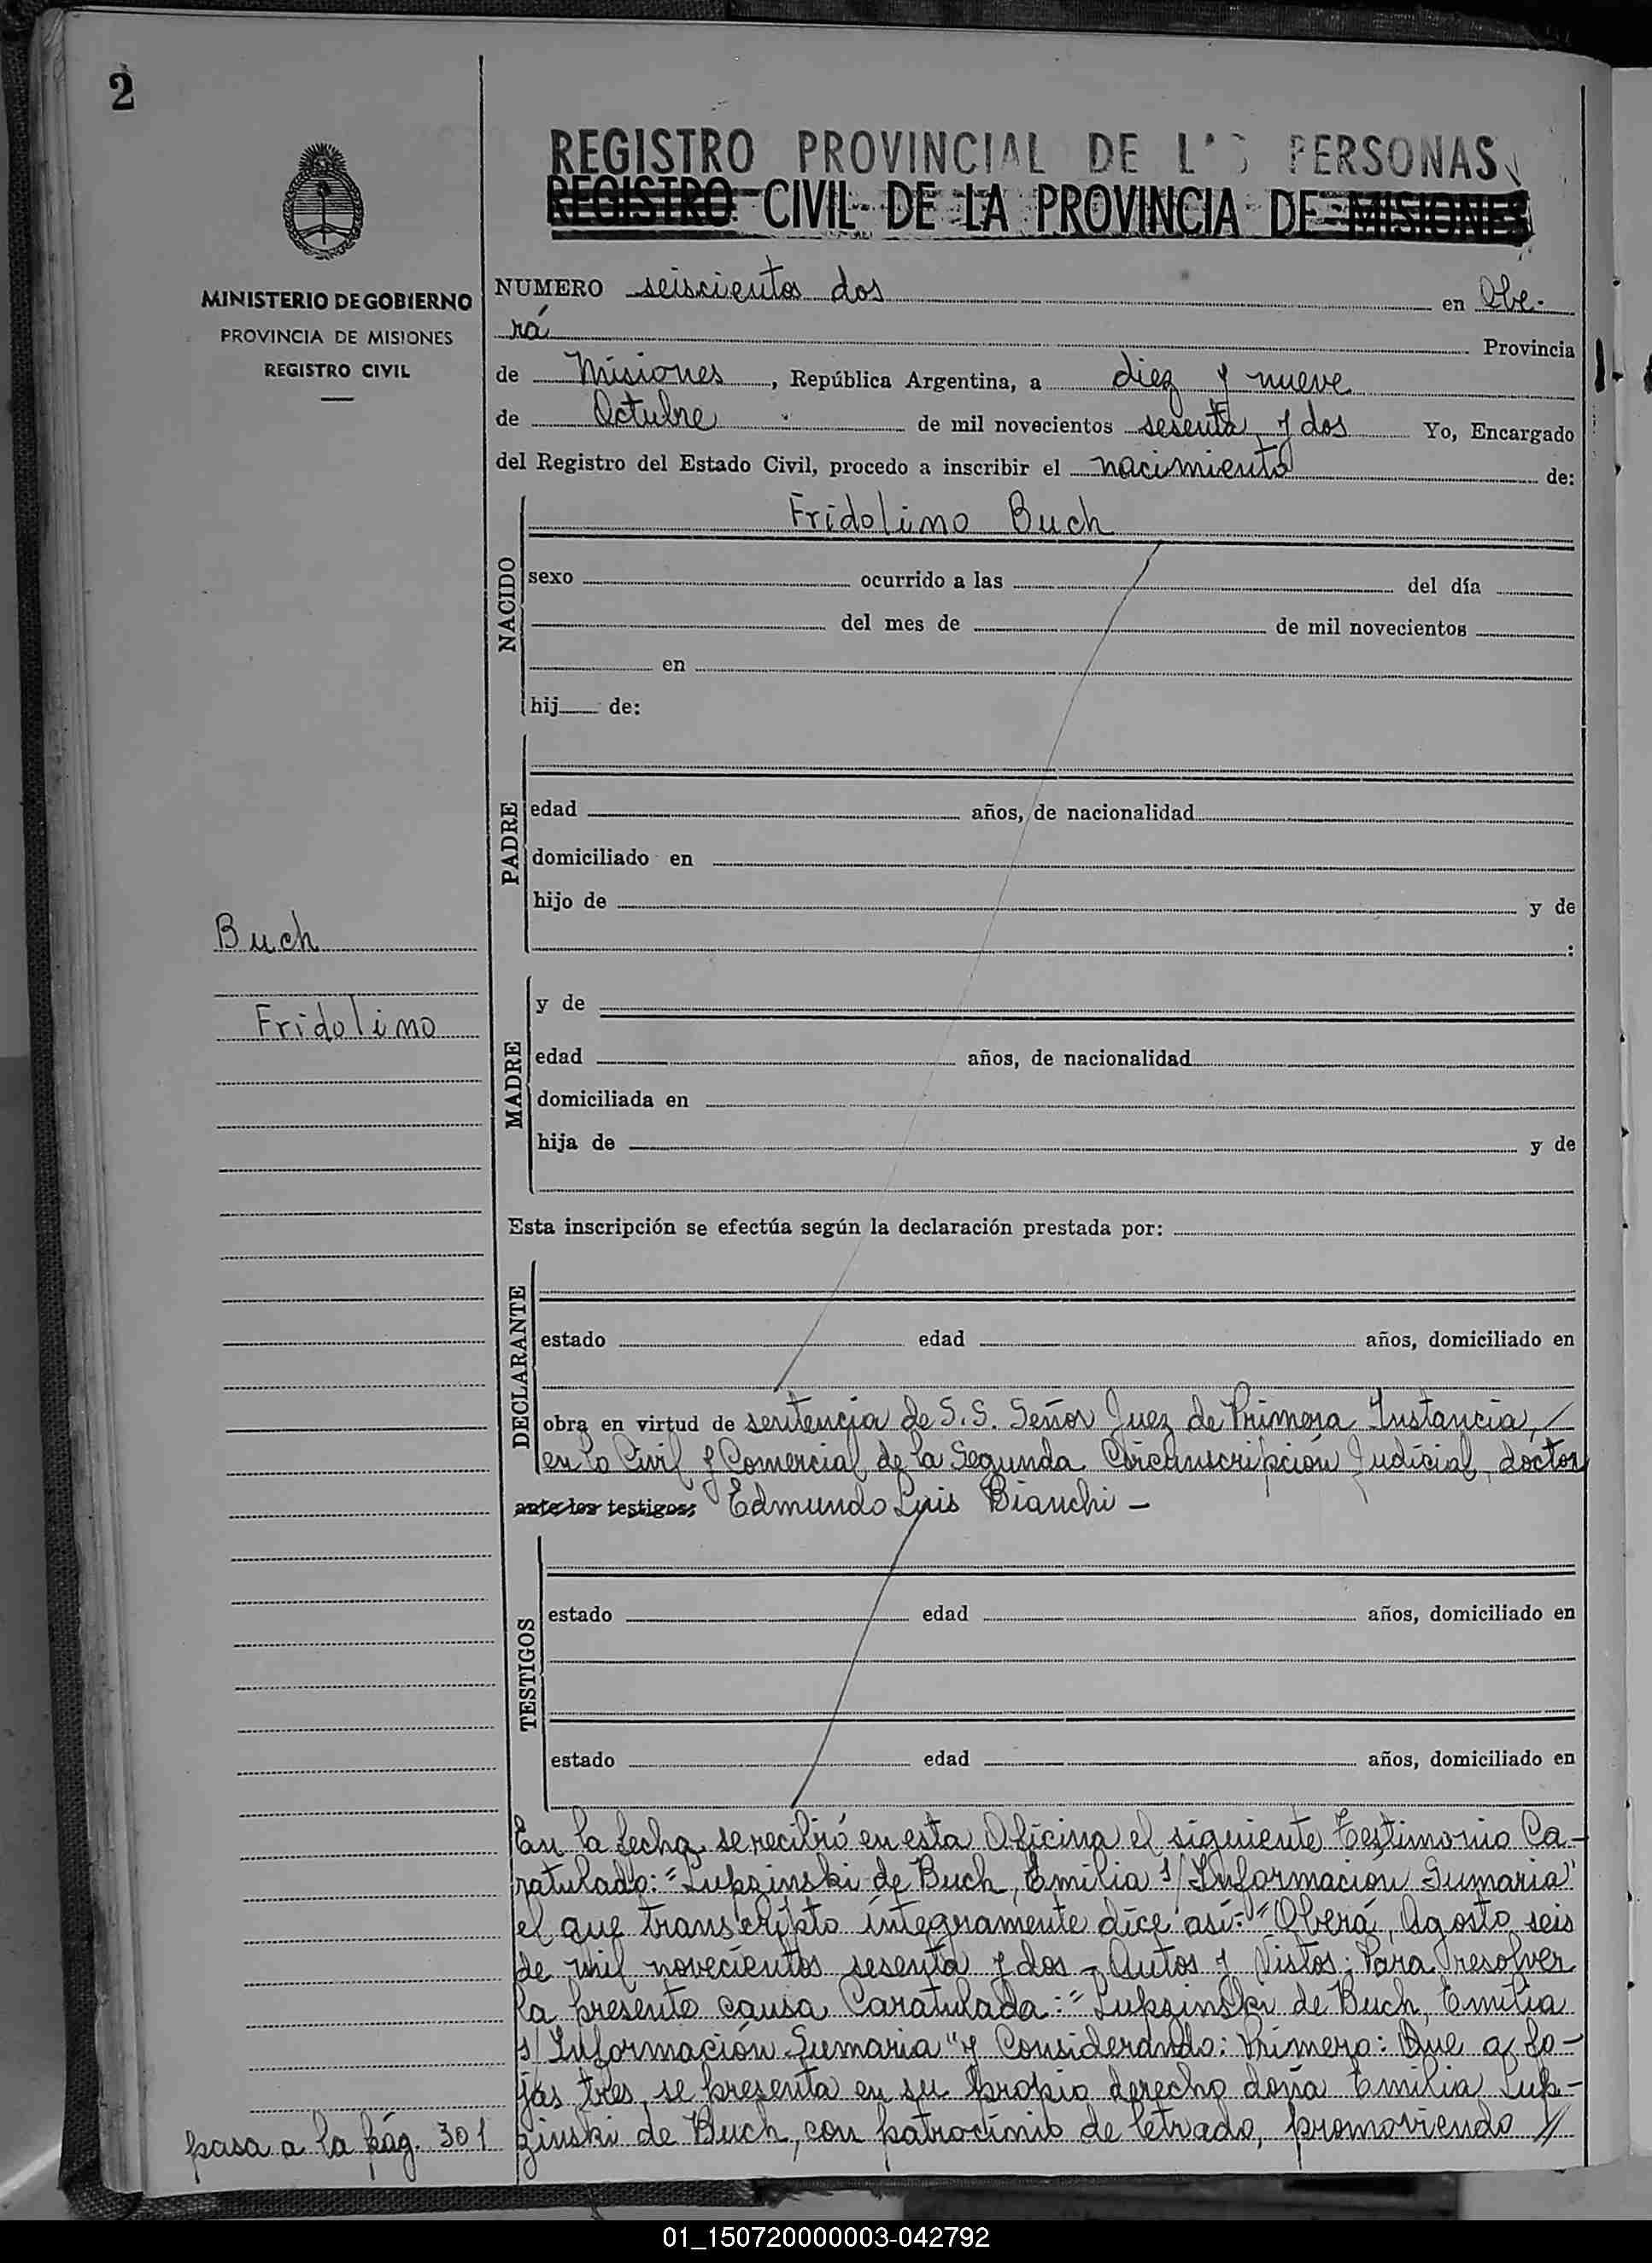 2
REGISTRO PROVINCIAL DE L S PERSONAS
REGISTRO CIVIL DE LA PROVINCIA DE MISIONES
MINISTERIO DE GOBIERNO
PROVINCIA DE MISIONES
REGISTRO CIVIL
NUMERO seiscientos dos en Obe-
rá Provincia
de Misiones, República Argentina, a diez y nueve
de Octubre de mil novecientos sesenta y dos Yo, Encargado
del Registro del Estado Civil, procedo a inscribir el nacimiento de:
NACIDO
Fridolino Buch
sexo ocurrido a las del día
del mes de de mil novecientos
en
hij de:
PADRE
edad años, de nacionalidad
domiciliado en
hijo de y de
:
Buch
Fridolino
MADRE
y de
edad años, de nacionalidad
domiciliada en
hija de y de
Esta inscripción se efectúa según la declaración prestada por:
DECLARANTE
estado edad años, domiciliado en
obra en virtud de sentencia de S.S. Señor Juez de Primera Instancia, /
en lo Civil y Comercial de la Segunda Circunscripción Judicial, doctor
ante los testigos: Edmundo Luis Bianchi -
TESTIGOS
estado edad años, domiciliado en
estado edad años, domiciliado en
En la fecha se recibió en esta Oficina el siguiente Testimonio Ca-
ratulado: "Lupzinski de Buch, Emilia s/ Información Sumaria"
el que transcripto íntegramente dice así: "Oberá, Agosto seis
de mil novecientos sesenta y dos - Autos y Vistos: Para resolver
la presente causa Caratulada: "Lupzinski de Buch, Emilia
s/ Información Sumaria" y Considerando: Primero: Que a fo-
jas tres se presenta en su propio derecho doña Emilia Lup-
zinski de Buch, con patrocinio de letrado, promoviendo //
pasa a la pág. 301
01_150720000003-042792